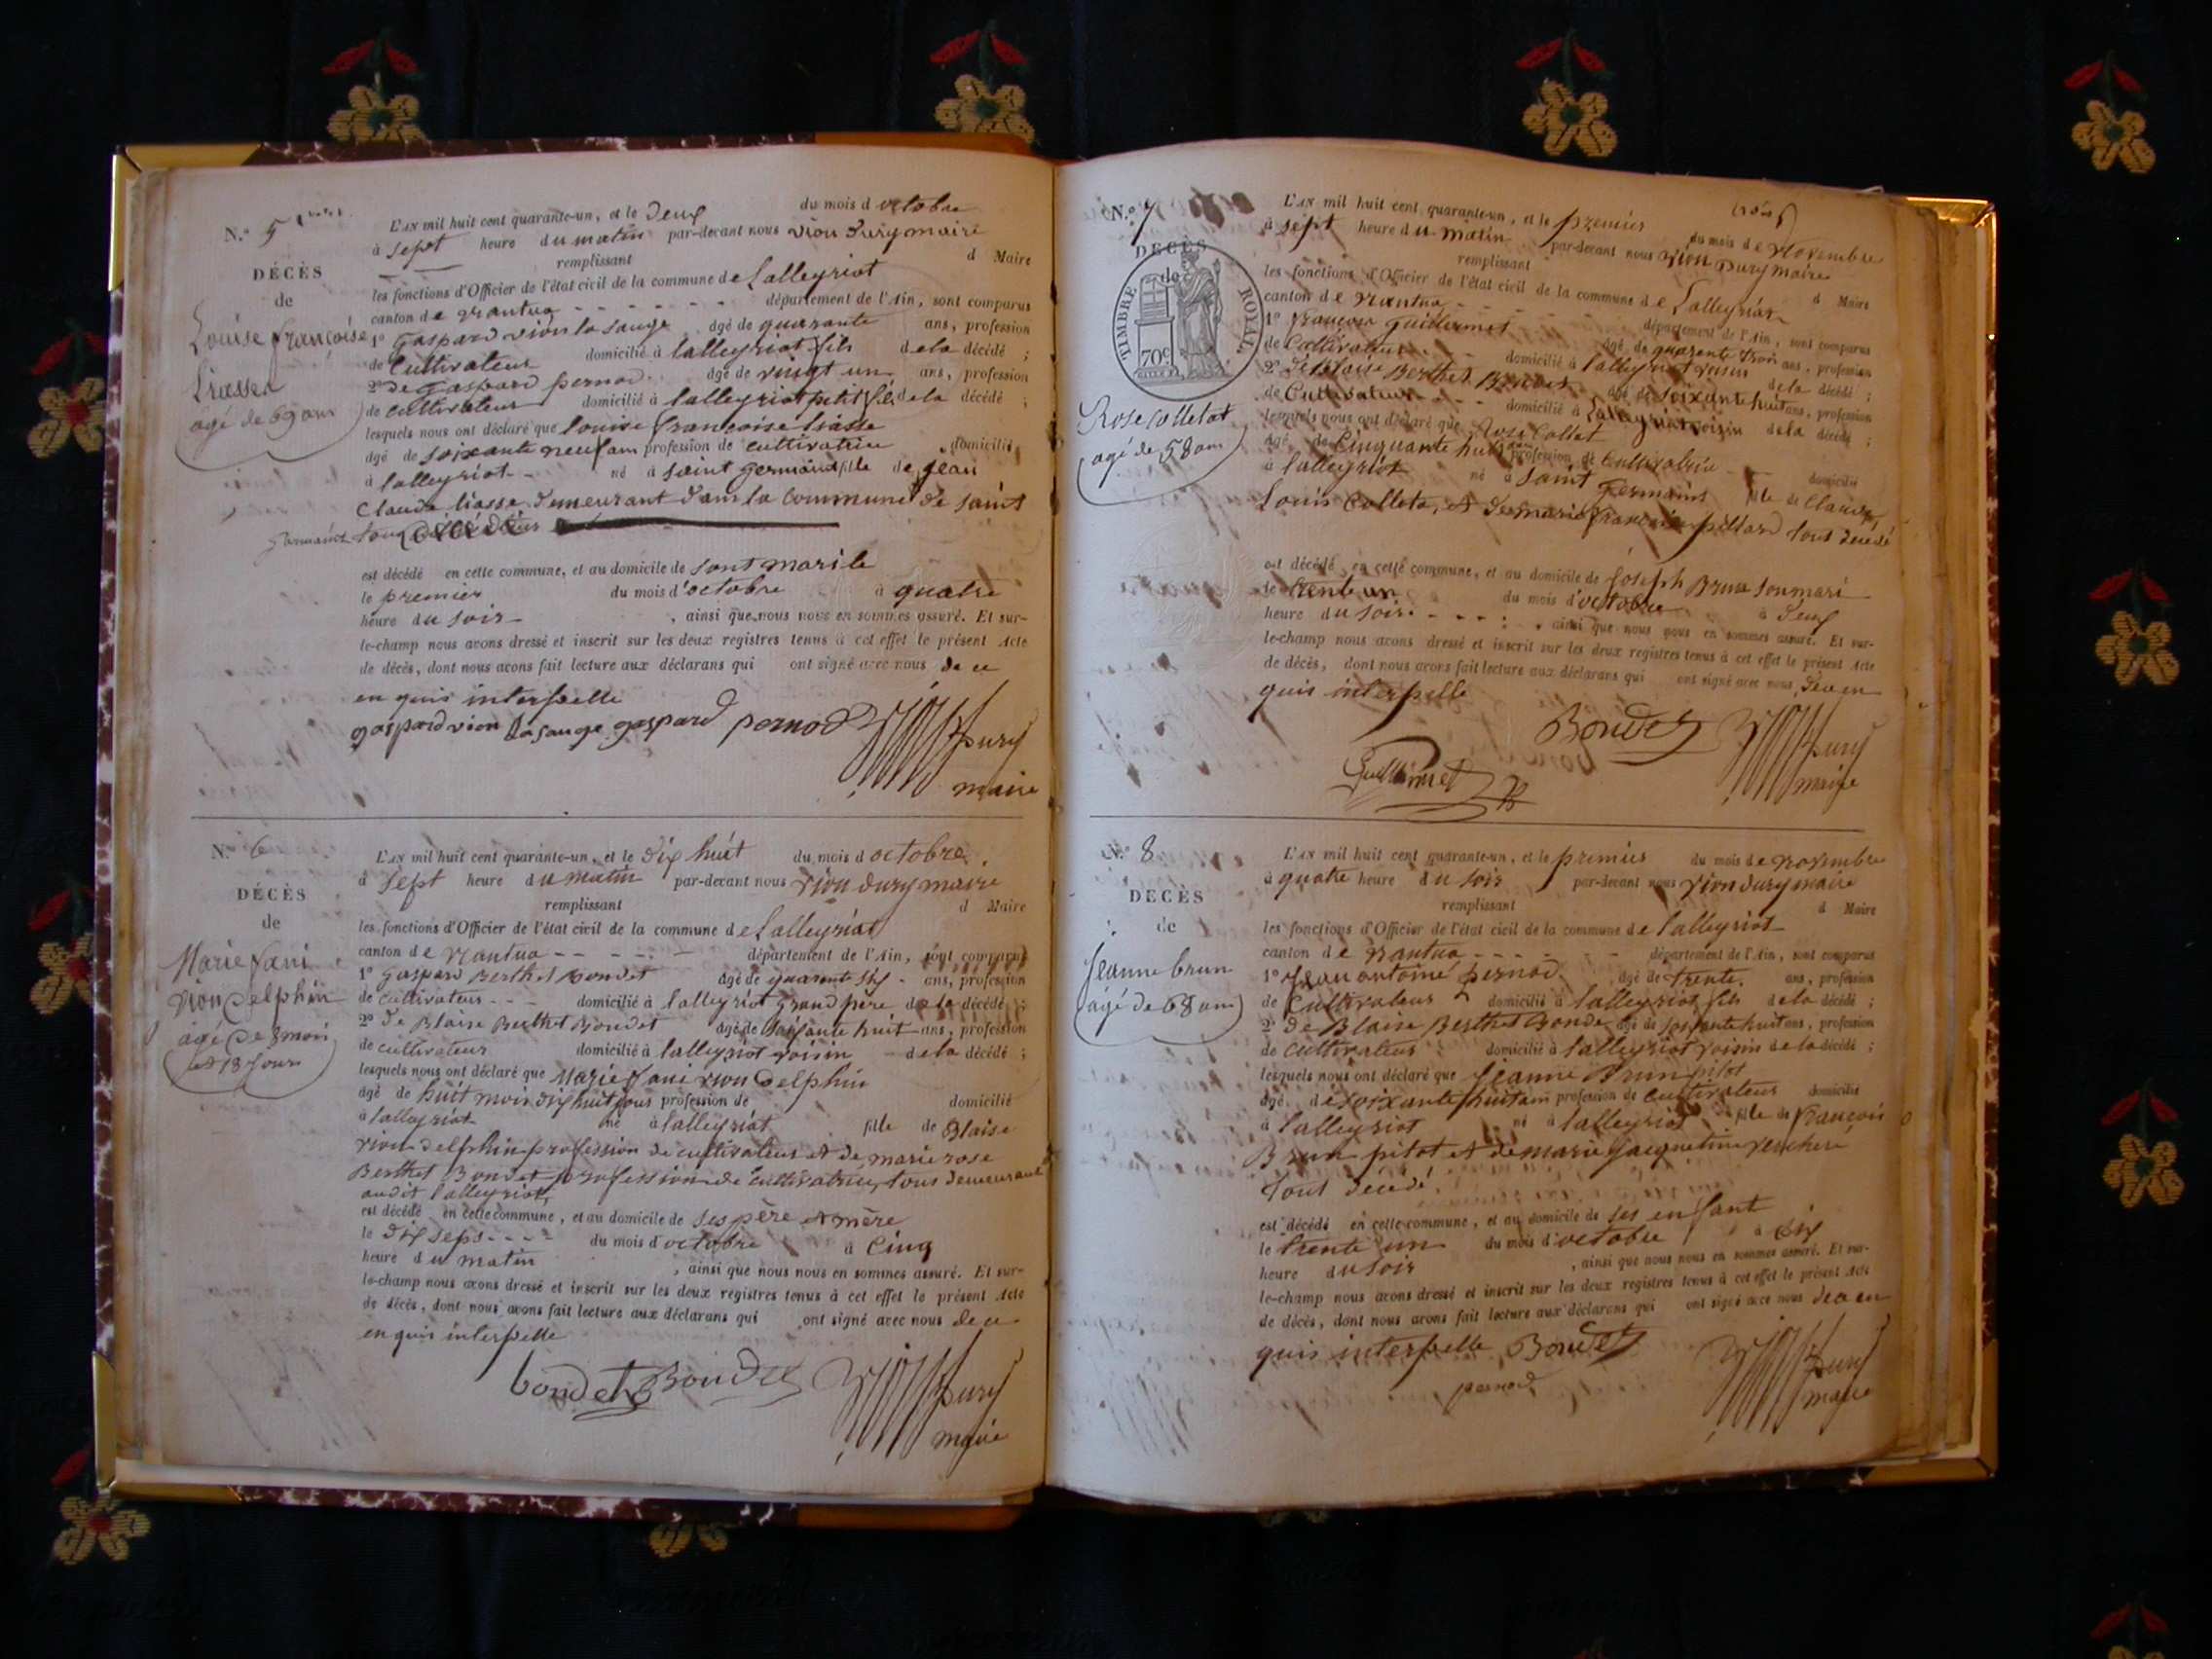 N.° 5
DÉCÈS
de
Louise françoise
Liasse
agé de 69 ans
L'AN mil huit cent quarante-un, et le deux du mois d octobre
à sept heure du matin par-devant nous vion dury maire
remplissant d Maire
les fonctions d'Officier de l'état civil de la commune de Lalleyriat
canton de Nantua département de l'Ain, sont comparus
1° gaspard vion la sauge âgé de quarante ans, profession
de Cultivateur domicilié à lalleyriat fils de la décédé ;
2° de gaspard pernod âgé de vingt un ans, profession
de cultivateur domicilié à lalleyriat petit fils de la décédé ;
lesquels nous ont déclaré que louise françoise liasse
âgé de soixante neuf ans profession de cultivatrice domicilié
à lalleyriat né à saint germains fille de jean
Claude liasse demeurant dans la Commune de saint
germains tous
est décédé en cette commune, et au domicile de sont mari le
le premier du mois d'octobre à quatre
heure du soir , ainsi que nous nous en sommes assuré. Et sur-
le-champ nous avons dressé et inscrit sur les deux registres tenus à cet effet le présent Acte
de décès, dont nous avons fait lecture aux déclarans qui ont signé avec nous de ce
en quis interpelle
gaspard vion la sauge gaspard pernod dury
maire
N.° 6
DÉCÈS
de
Marie fani
vion delphin
agé de 8 mois
et 18 jours
L'AN mil huit cent quarante-un, et le dix huit du mois d octobre
à sept heure du matin par-devant nous vion dury maire
remplissant d Maire
les fonctions d'Officier de l'état civil de la commune de Lalleyriat
canton de Nantua département de l'Ain, sont comparus
1° gaspard Berthet Bondet âgé de quarent six ans, profession
de cultivateur domicilié à lalleyriat grand père de la décédé ;
2° de Blaise Berthet Bondet âgé de soixante huit ans, profession
de cultivateur domicilié à lalleyriat voisin de la décédé ;
lesquels nous ont déclaré que Marie fani vion delphin
âgé de huit mois dix huit jours profession de domicilié
à lalleyriat né à lalleyriat fille de Blaise
vion delphin profession de cultivateur et de marie rose
Berthet Bondet profession de cultivatrice, tous demeurant
audit lalleyriat
est décédé en cette commune, et au domicile de ses père et mère
le dix sept du mois d'octobre à Cinq
heure du matin , ainsi que nous nous en sommes assuré. Et sur-
le-champ nous avons dressé et inscrit sur les deux registres tenus à cet effet le présent Acte
de décès, dont nous avons fait lecture aux déclarans qui ont signé avec nous de ce
en quis interpelle
bondet Bondet dury
maire
N.° 7
DÉCÈS
de
TIMBRE ROYAL
70c
Rose Colletat
agé de 58 ans
L'AN mil huit cent quarante-un, et le premier du mois de Novembre
à sept heure du matin par-devant nous vion dury maire
remplissant d Maire
les fonctions d'Officier de l'état civil de la commune de Lalleyriat
canton de Nantua département de l'Ain, sont comparus
1° françois guillermet âgé de quarente trois ans, profession
de Cultivateur domicilié à lalleyriat voisin de la décédé ;
2° de Blaise Berthet Bondet âgé de soixante huit ans, profession
de Cultivateur domicilié à Lalleyriat voisin de la décédé ;
lesquels nous ont déclaré que Rose Collet
âgé de Cinquante huit ans profession de Cultivatrice domicilié
à lalleyriat né à saint germains fille de Claude
Louis Colleta, et de marie françoise pillard tout décédé
est décédé en cette commune, et au domicile de joseph Brun son mari
le trente un du mois d'octobre à deux
heure du soir , ainsi que nous nous en sommes assuré. Et sur-
le-champ nous avons dressé et inscrit sur les deux registres tenus à cet effet le présent Acte
de décès, dont nous avons fait lecture aux déclarans qui ont signé avec nous de ce en
quis interpelle
Bondet dury
Guillermet maire
N.° 8
DÉCÈS
de
Jeanne brun
agé de 68 ans
L'AN mil huit cent quarante-un, et le premier du mois de novembre
à quatre heure du soir par-devant nous vion dury maire
remplissant d Maire
les fonctions d'Officier de l'état civil de la commune de lalleyriat
canton de Nantua département de l'Ain, sont comparus
1° Jean antoine pernod âgé de trente ans, profession
de Cultivateur domicilié à lalleyriat fils de la décédé ;
2° de Blaise Berthet Bonde âgé de soixante huit ans, profession
de cultivateur domicilié à lalleyriat voisin de la décédé ;
lesquels nous ont déclaré que Jeanne Brun pitot
âgé de soixante huit ans profession de cultivateur domicilié
à lalleyriat né à lalleyriat fille de françois
Brun pitot et de marie jacquetine
tout décédé
est décédé en cette commune, et au domicile de ses enfant
le trente un du mois d'octobre à six
heure du soir , ainsi que nous nous en sommes assuré. Et sur-
le-champ nous avons dressé et inscrit sur les deux registres tenus à cet effet le présent Acte
de décès, dont nous avons fait lecture aux déclarans qui ont signé avec nous de ce en
quis interpelle Bondet dury
pernod maire